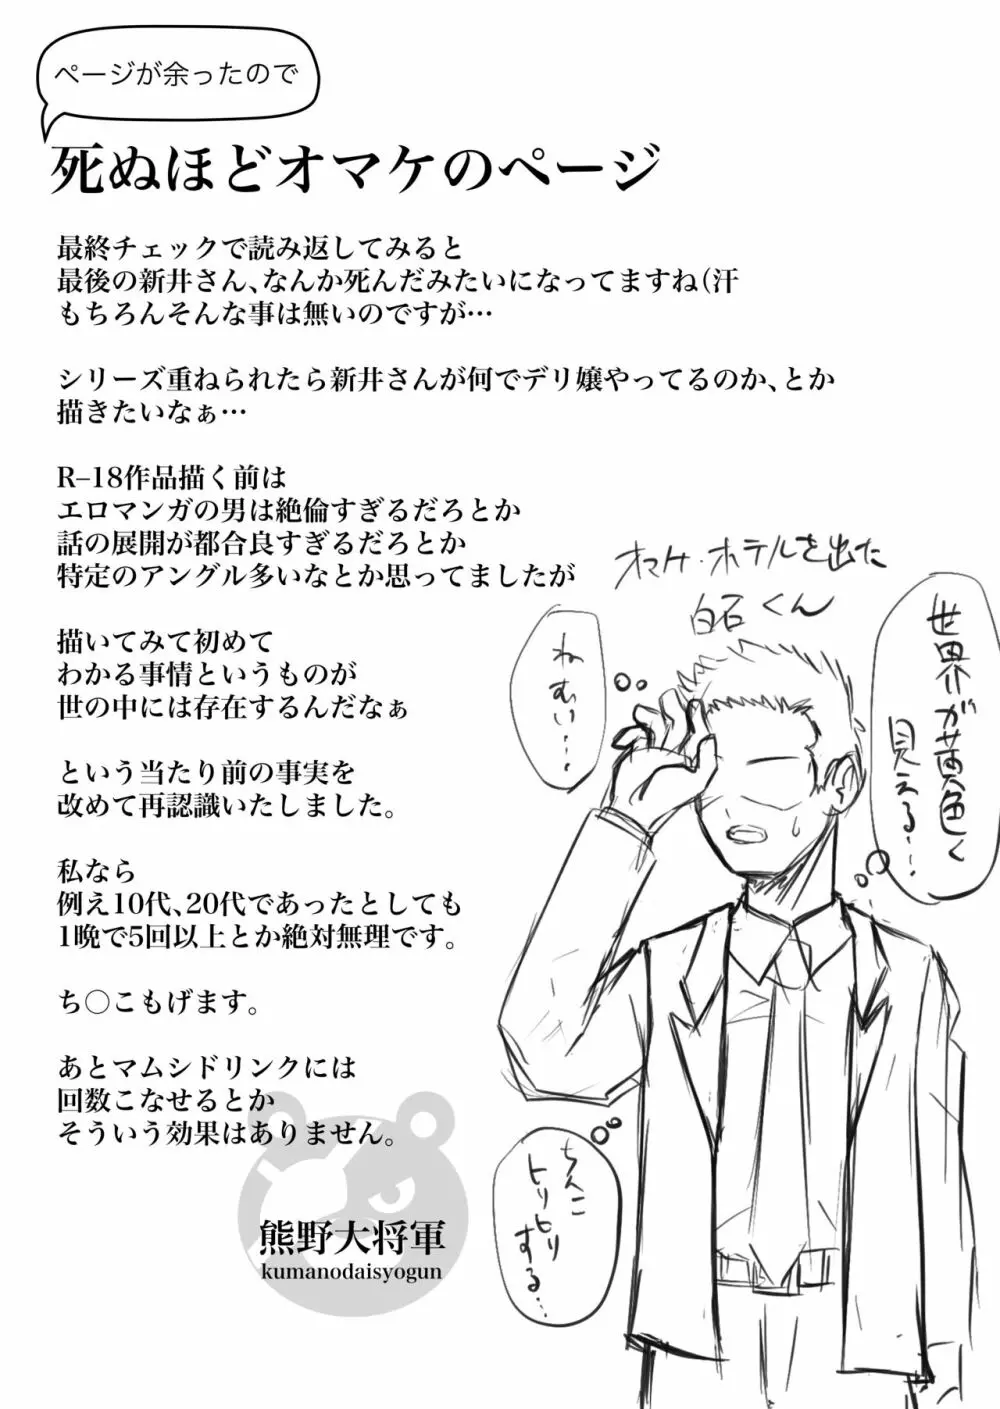 ページが余ったので
死ぬほどオマケのページ
最終チェックで読み返してみると
最後の新井さん、なんか死んだみたいになってますね(汗
もちろんそんな事は無いのですが…
シリーズ重ねられたら新井さんが何でデリ嬢やってるのか、とか
描きたいなぁ…
R–18作品描く前は
エロマンガの男は絶倫すぎるだろとか
話の展開が都合良すぎるだろとか
特定のアングル多いなとか思ってましたが
描いてみて初めて
わかる事情というものが
世の中には存在するんだなぁ
という当たり前の事実を
改めて再認識いたしました。
私なら
例え10代、20代であったとしても
1晩で5回以上とか絶対無理です。
ち○こもげます。
あとマムシドリンクには
回数こなせるとか
そういう効果はありません。
熊野大将軍
kumanodaisyogun
オマケ・ホテルを出た
白石くん
世界が黄色く
見える…
ねむい…
ちんこ
ヒリヒリ
する…